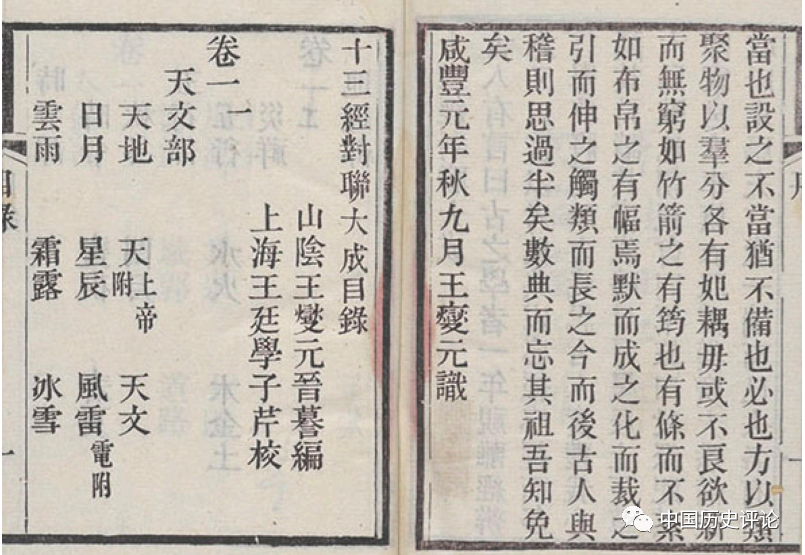 當也設之不當猶不備也必也方以類
聚物以羣分各有妃耦毋或不良欲新
而無窮如竹箭之有筠也有條而不紊
如布帛之有幅焉默而成之化而裁之
引而伸之觸類而長之今而後古人與
稽則思過半矣數典而忘其祖吾知免
矣
咸豐元年秋九月王燮元識
十三經對聯大成目錄
山陰王燮元晉蕃編
上海王廷學子芹校
卷一
天文部
天地 天上帝附 天文
日月 星辰 風雷電附
雲雨 霜露 冰雪
目錄
一
中国历史评论